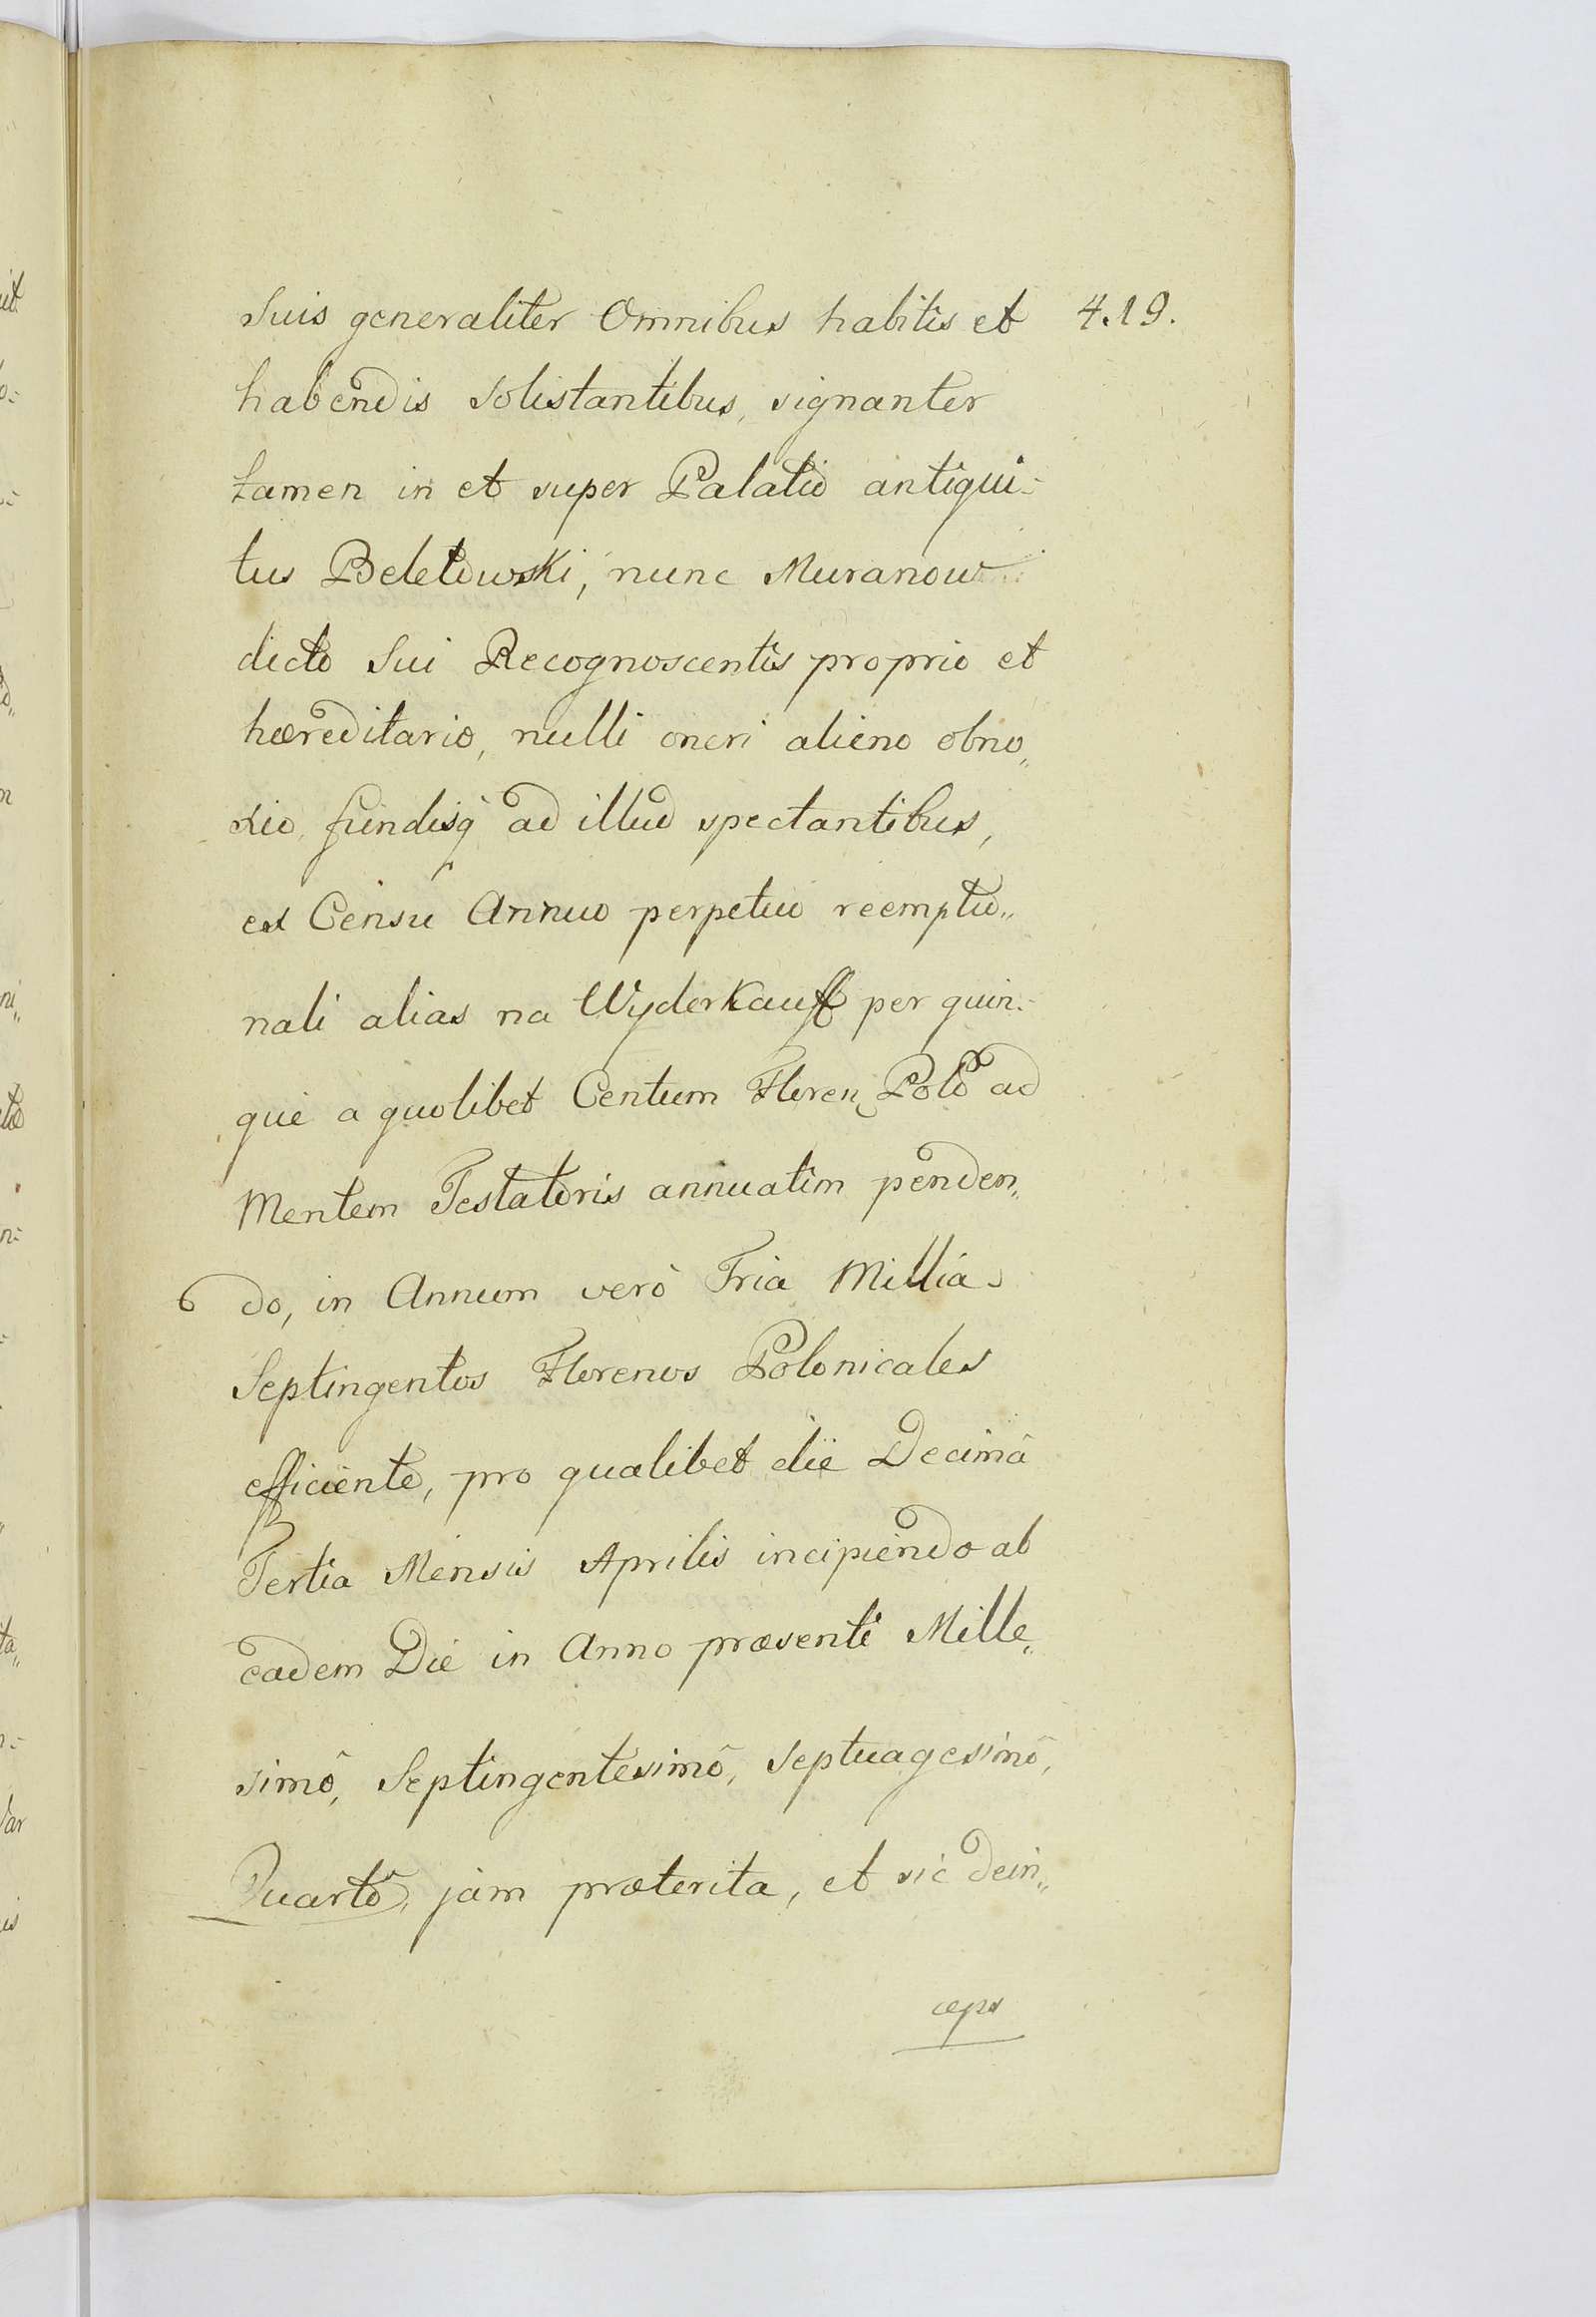 Suis generaliter Omnibus habitis et 4.19.
habendis solistantibus, signanter
tamen in et super Palatio antiqui-
tus Beletowski, nunc Muranow
dicto Sui Recognoscentis proprio et
hæreditario, nulli oneri alieno obno„
xio, fundisq ad illud spectantibus,
ex Censu Annuo perpetuo reemptio„
nali alias na Wyderkauff per quin-
que a quolibet Centum Floren Polo ad
Mentem Testatoris annuatim penden„
do, in Annum verò Tria Millia
Septingentos Florenos Polonicales
efficiente, pro qualibet die Decimâ
Tertia Mensis Aprilis incipiendo ab
eadem Die in Anno præsenti Mille„
simô, Septingentesimô, Septuagesimô,
Quartô, jam præterita, et sic dein„
ceps